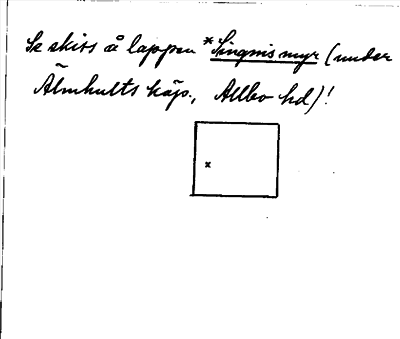 Se skiss å lappen *Singnismyr (under
Älmhults köp., Allbo hd)!
x